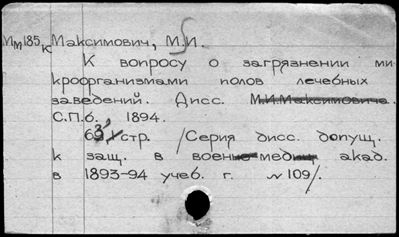 Мм185к Максимович, М.И.
К вопросу о загрязнении ми
кроорганизмами полов лечебных
заведений. Дисс. М.И.Максимовича.
С.П.б. 1894.
63 стр. /Серия дисс. допущ.
к защ. в военно-медиц акад.
в 1893-94 учеб. г. №109/.